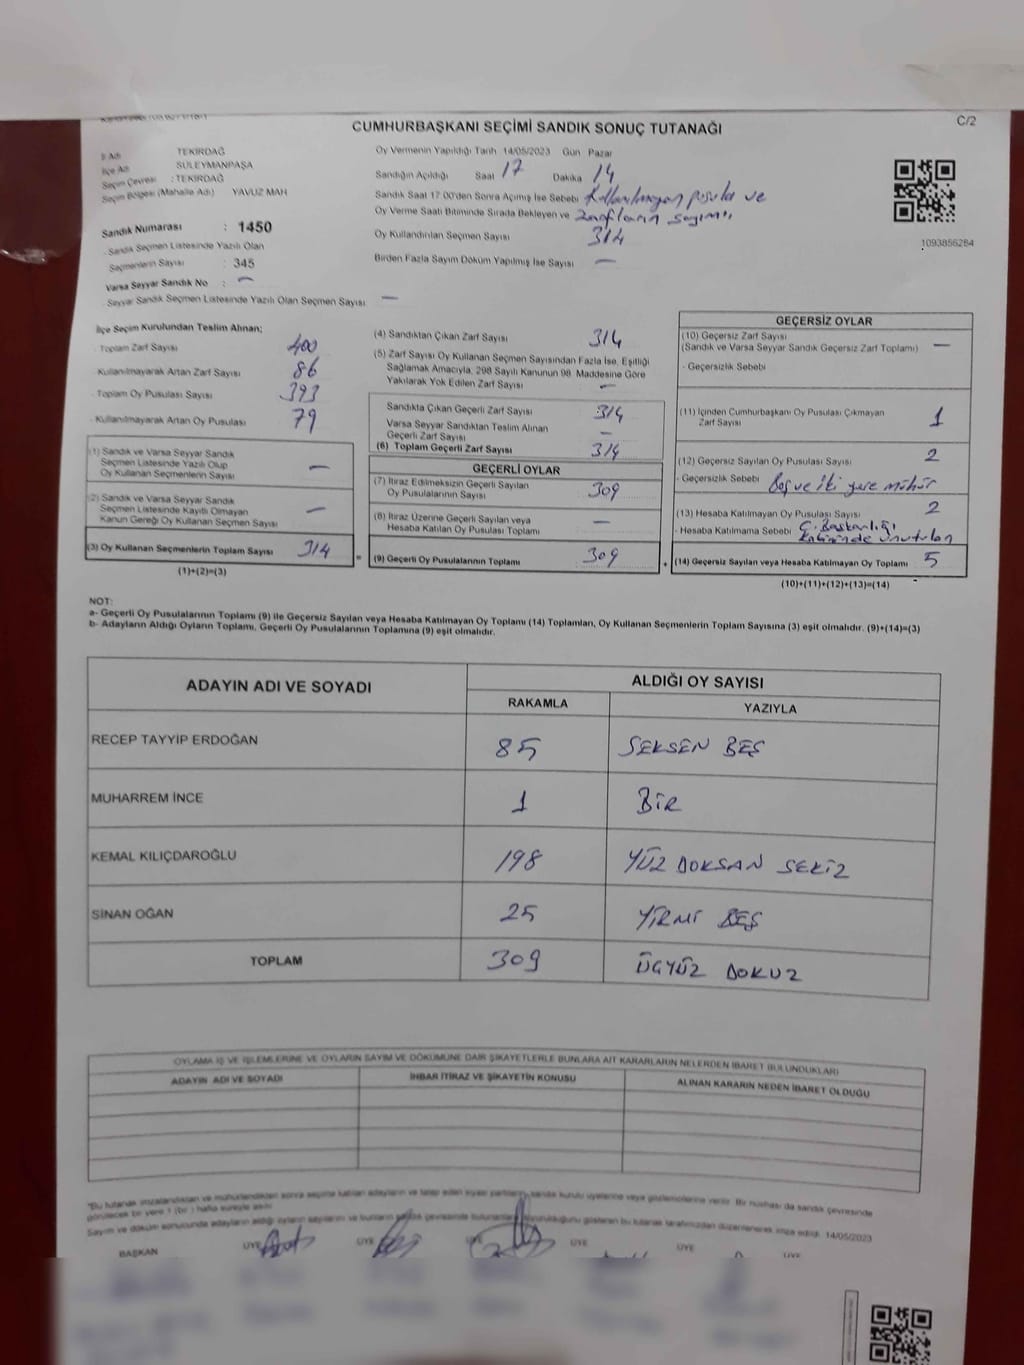 CUMHURBAŞKANI SEÇİMİ SANDIK SONUÇ TUTANAĞI
C/2
İl Adı TEKİRDAĞ
İlçe Adı SÜLEYMANPAŞA
Seçim Çevresi : TEKİRDAĞ
Seçim Bölgesi (Mahalle Adı) YAVUZ MAH
Sandık Numarası : 1450
Sandık Seçmen Listesinde Yazılı Olan
Seçmenlerin Sayısı : 345
Varsa Seyyar Sandık No : —
Seyyar Sandık Seçmen Listesinde Yazılı Olan Seçmen Sayısı —
Oy Vermenin Yapıldığı Tarih 14/05/2023 Gün Pazar
Sandığın Açıldığı Saat 17 Dakika 14
Sandık Saat 17.00'den Sonra Açılmış İse Sebebi Kullanılmayan pusula ve
Oy Verme Saati Bitiminde Sırada Bekleyen ve zarfların sayımı
Oy Kullandırılan Seçmen Sayısı 314
Birden Fazla Sayım Döküm Yapılmış İse Sayısı —
1093856284
İlçe Seçim Kurulundan Teslim Alınan;
- Toplam Zarf Sayısı 400
- Kullanılmayarak Artan Zarf Sayısı 86
- Toplam Oy Pusulası Sayısı 393
- Kullanılmayarak Artan Oy Pusulası 79
(1) Sandık ve Varsa Seyyar Sandık
Seçmen Listesinde Yazılı Olup
Oy Kullanan Seçmenlerin Sayısı —
(2) Sandık ve Varsa Seyyar Sandık
Seçmen Listesinde Kayıtlı Olmayan
Kanun Gereği Oy Kullanan Seçmen Sayısı —
(3) Oy Kullanan Seçmenlerin Toplam Sayısı 314 =
(1)+(2)=(3)
(4) Sandıktan Çıkan Zarf Sayısı 314
(5) Zarf Sayısı Oy Kullanan Seçmen Sayısından Fazla İse, Eşitliği
Sağlamak Amacıyla, 298 Sayılı Kanunun 98. Maddesine Göre
Yakılarak Yok Edilen Zarf Sayısı —
Sandıkta Çıkan Geçerli Zarf Sayısı 314
Varsa Seyyar Sandıktan Teslim Alınan
Geçerli Zarf Sayısı —
(6) Toplam Geçerli Zarf Sayısı 314
GEÇERLİ OYLAR
(7) İtiraz Edilmeksizin Geçerli Sayılan
Oy Pusulalarının Sayısı 309
(8) İtiraz Üzerine Geçerli Sayılan veya
Hesaba Katılan Oy Pusulası Toplamı —
(9) Geçerli Oy Pusulalarının Toplamı 309 +
GEÇERSİZ OYLAR
(10) Geçersiz Zarf Sayısı
(Sandık ve Varsa Seyyar Sandık Geçersiz Zarf Toplamı) —
- Geçersizlik Sebebi
(11) İçinden Cumhurbaşkanı Oy Pusulası Çıkmayan
Zarf Sayısı 1
(12) Geçersiz Sayılan Oy Pusulası Sayısı 2
- Geçersizlik Sebebi Boş ve iki yere mühür
(13) Hesaba Katılmayan Oy Pusulası Sayısı 2
- Hesaba Katılmama Sebebi C. Başkanlığı
Kabininde unutulan
(14) Geçersiz Sayılan veya Hesaba Katılmayan Oy Toplamı 5
(10)+(11)+(12)+(13)=(14)
NOT:
a- Geçerli Oy Pusulalarının Toplamı (9) ile Geçersiz Sayılan veya Hesaba Katılmayan Oy Toplamı (14) Toplamları, Oy Kullanan Seçmenlerin Toplam Sayısına (3) eşit olmalıdır. (9)+(14)=(3)
b- Adayların Aldığı Oyların Toplamı, Geçerli Oy Pusulalarının Toplamına (9) eşit olmalıdır.
ADAYIN ADI VE SOYADI
ALDIĞI OY SAYISI
RAKAMLA YAZIYLA
RECEP TAYYİP ERDOĞAN 85 SEKSEN BEŞ
MUHARREM İNCE 1 BİR
KEMAL KILIÇDAROĞLU 198 YÜZ DOKSAN SEKİZ
SİNAN OĞAN 25 YİRMİ BEŞ
TOPLAM 309 ÜÇYÜZ DOKUZ
OYLAMA İŞ VE İŞLEMLERİNE VE OYLARIN SAYIM VE DÖKÜMÜNE DAİR ŞİKAYETLERLE BUNLARA AİT KARARLARIN NELERDEN İBARET BULUNDUKLARI
ADAYIN ADI VE SOYADI İHBAR İTİRAZ VE ŞİKAYETİN KONUSU ALINAN KARARIN NEDEN İBARET OLDUĞU
"Bu tutanak imzalandıktan ve mühürlendikten sonra seçime katılan adayların ve talep eden siyasi partilerin sandık kurulu üyelerine veya gözlemcilerine verilir. Bir nüshası da sandık çevresinde
görülecek bir yere 1 (bir) hafta süreyle asılır.
Sayım ve döküm sonucunda adayların aldığı oyların sayılarını ve bunların sandık çevresinde bulunanlara duyurulduğunu gösteren bu tutanak tarafımızdan düzenlenerek imza edildi. 14/05/2023
BAŞKAN ÜYE ÜYE ÜYE ÜYE ÜYE ÜYE